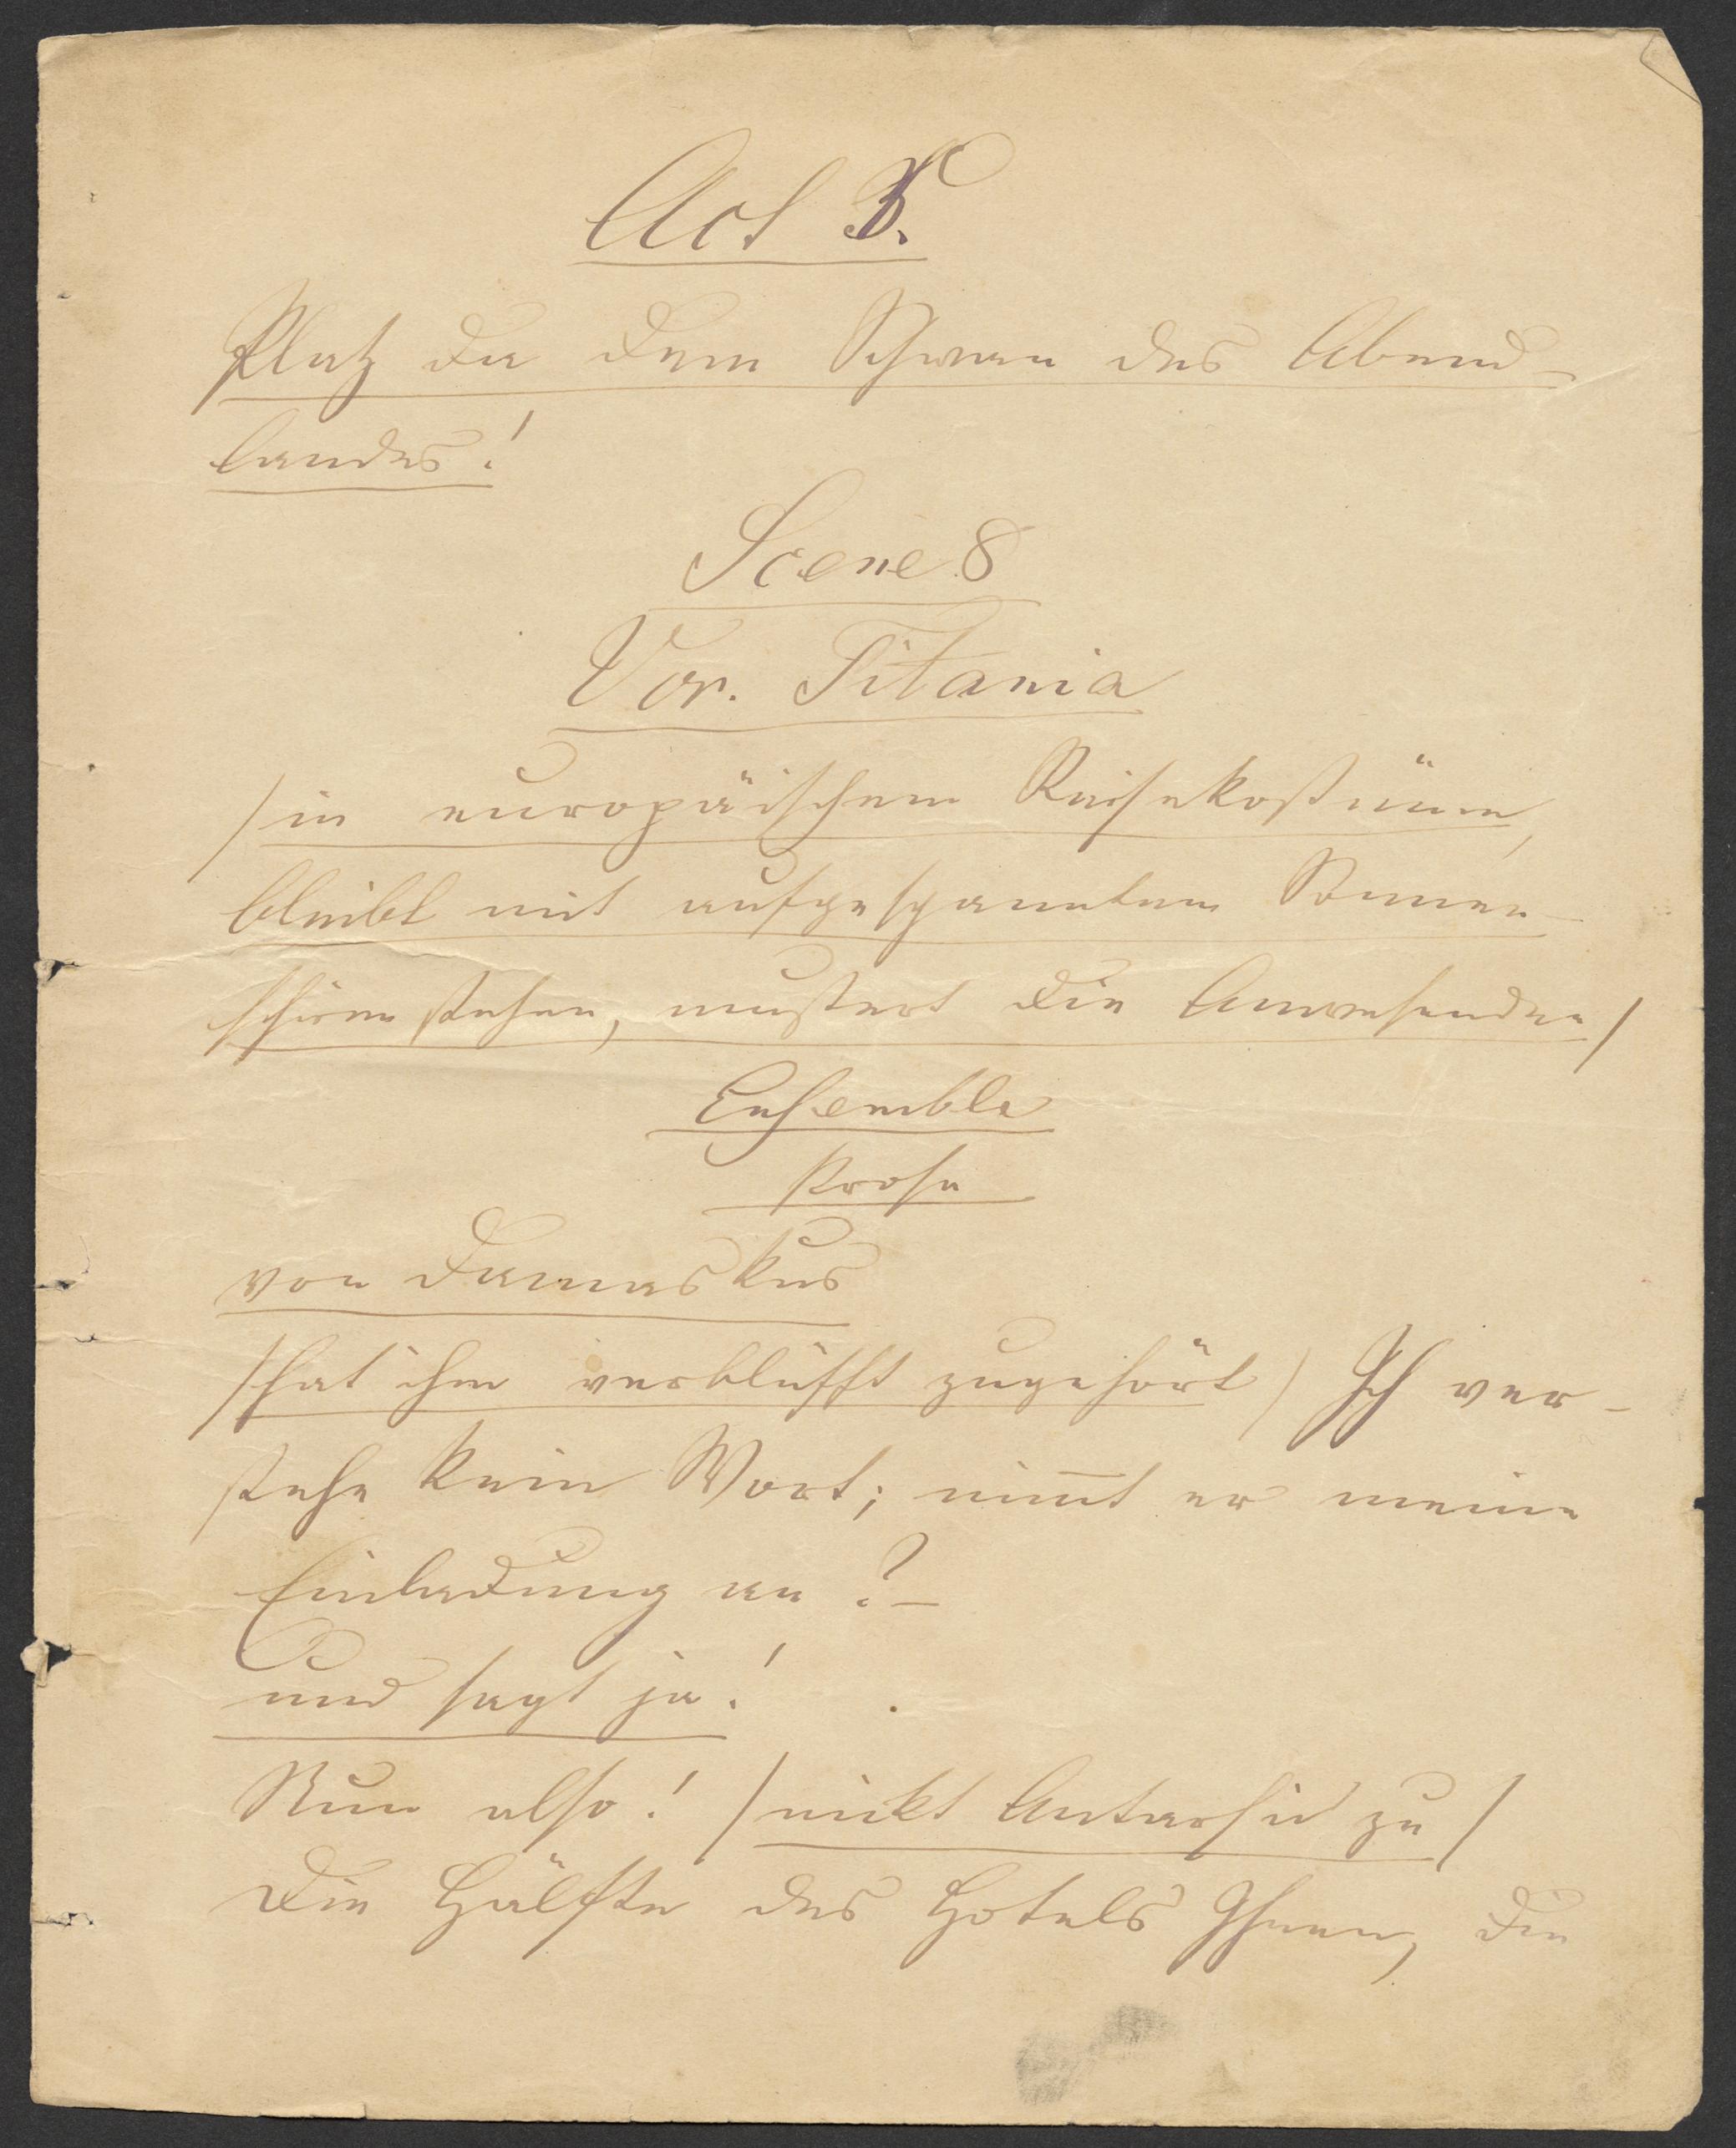 Act 3.
Platz da dem Schwan des Abend-
landes!
Scene 8
Vor. Titania
/in europäischem Reisekostüme,
bleibt mit aufgespanntem Sonnen-
schirm stehen, mustert die Anwesenden/
Ensemble
Prosa
von Damaskus
/hat ihm verblüfft zugehört/ Ich ver-
stehe kein Wort; nim̅t er meine
Einladung an?-
und sagt ja!
Nun also! /nickt Antarsid zu/
Die Hälfte des Hotels Ihnen, die